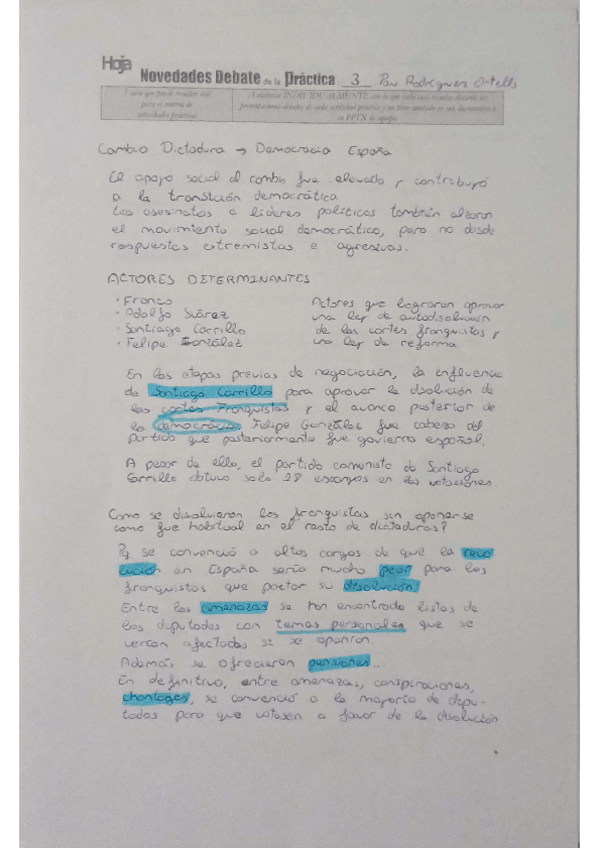 Hoja
Novedades Debate de la Práctica 3 Pau Rodríguez Ortells
Cambio Dictadura → Democracia España
El apoyo social al cambio fue elevado y contribuyó
a la transición democrática
Los asesinatos a líderes políticos también alzaron
el movimiento social democrático, pero no desde
respuestas extremistas e agresivas.
ACTORES DETERMINANTES
· Franco
· Adolfo Suárez
· Santiago Carrillo
· Felipe González
Actores que lograron aprovar
una ley de autodisolución
de las cortes franquistas y
una ley de reforma
En las etapas previas de negociación, la influencia
de Santiago Carrillo para aprovar la disolución de
las cortes Franquistas y el avance posterior de
la democracia. Felipe González fue cabeza del
partido que posteriormente fue govierno español.
A pesar de ello, el partido comunista de Santiago
Carrillo obtuvo solo 28 escanyos en las votaciones.
Como se disolvieron los franquistas sin oponerse
como fue habitual en el resto de dictaduras?
se convenció a altos cargos de que la revo
lución en España seria mucho peor para los
franquistas que pactar su disolución.
Entre las amenazas se han encontrado listas de
los diputados con temas personales que se
verian afectados si se oponian.
Además se ofrecieron pensiones..
En definitiva, entre amenazas, conspiraciones,
chantages, se convenció a la mayoria de dipu-
tados para que votasen a favor de la disolución